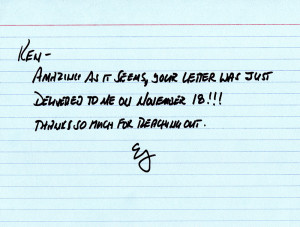 KEN-
AMAZING AS IT SEEMS, YOUR LETTER WAS JUST
DELIVERED TO ME ON NOVEMBER 18!!!
THANKS SO MUCH FOR REACHING OUT.